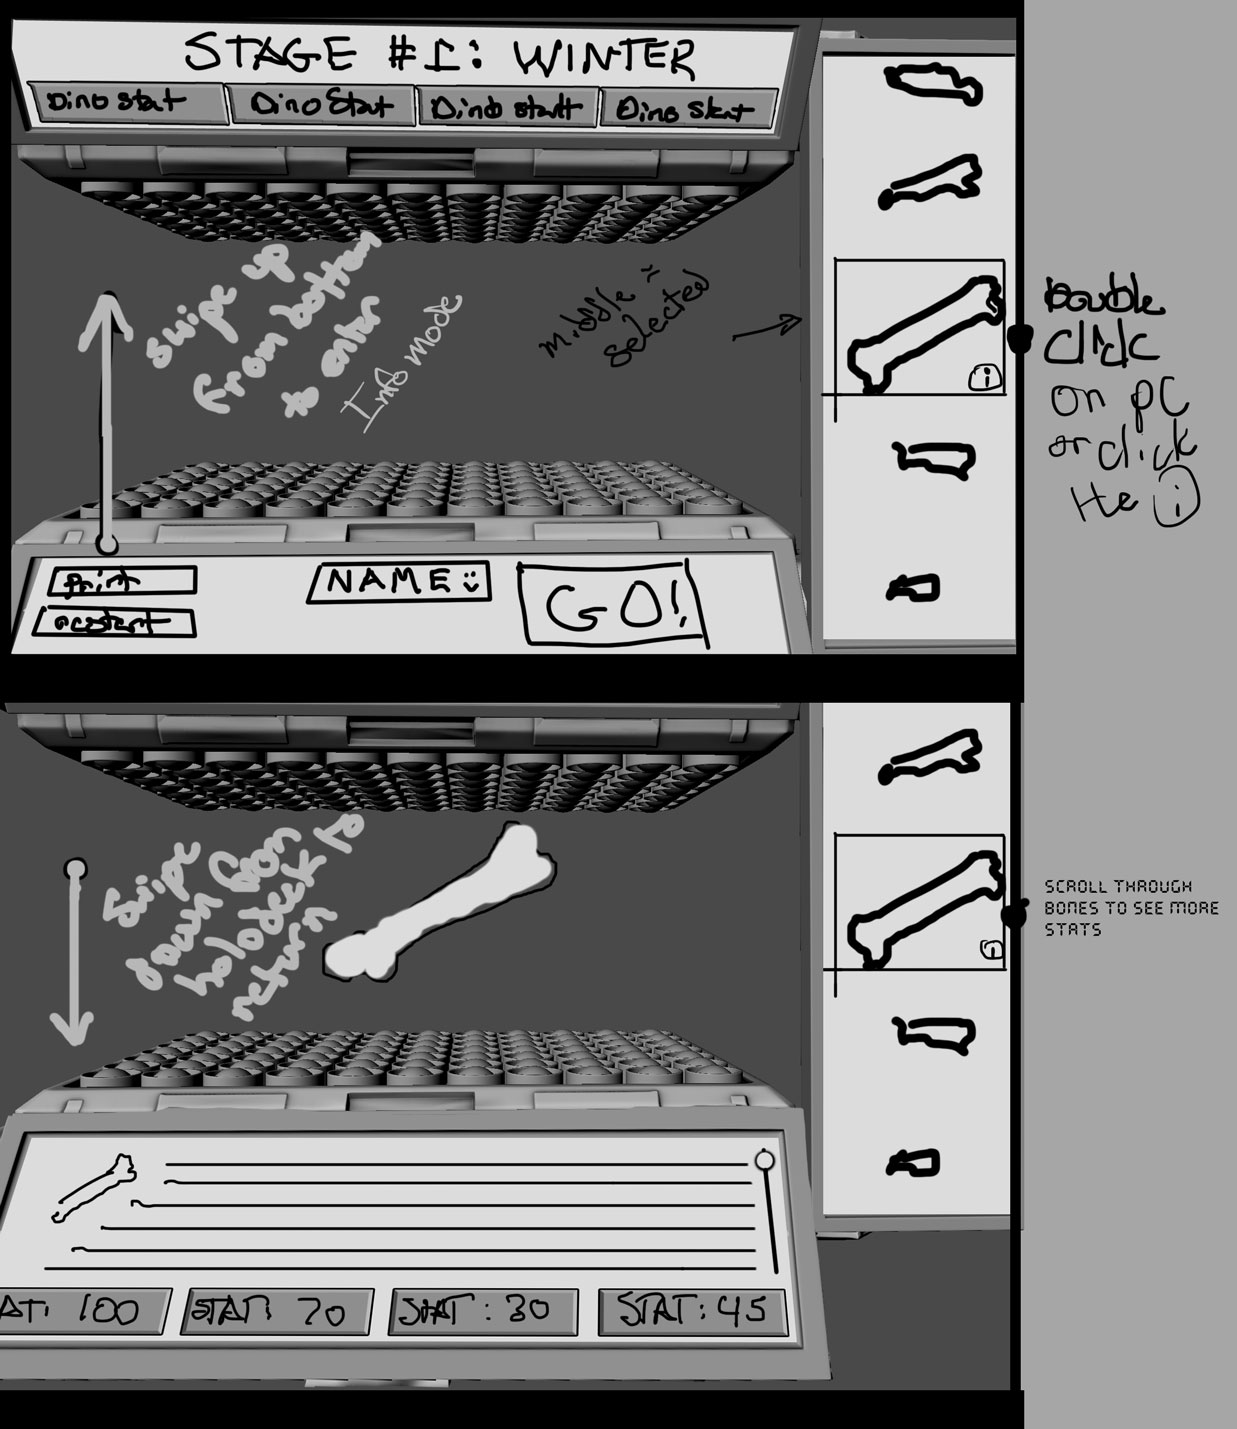 STAGE #1: WINTER
Dino stat
Dino Stat
Dino statt
Dino Stat
swipe up
from bottom
to enter
Info mode
middle =
selected
Double
click
on pc
or click
the i
i
print
restart
NAME:
GO!
Swipe
down from
holodeck to
return
i
SCROLL THROUGH
BONES TO SEE MORE
STATS
AT: 100
STAT: 70
STAT: 30
STAT: 45